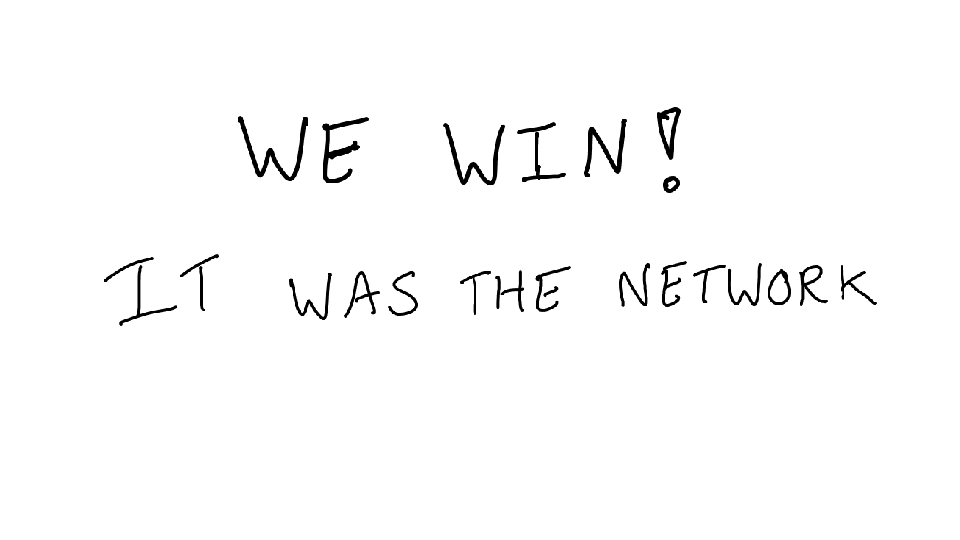 WE WIN!
IT WAS THE NETWORK